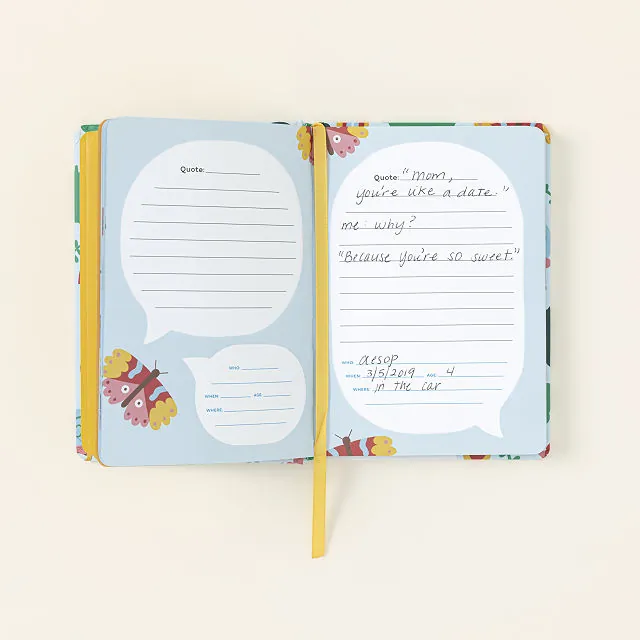 Quote:
WHO
WHEN AGE
WHERE
Quote: "Mom,
you're like a date."
me: why?
"Because you're so sweet."
WHO aesop
WHEN 3/5/2019 AGE 4
WHERE in the car